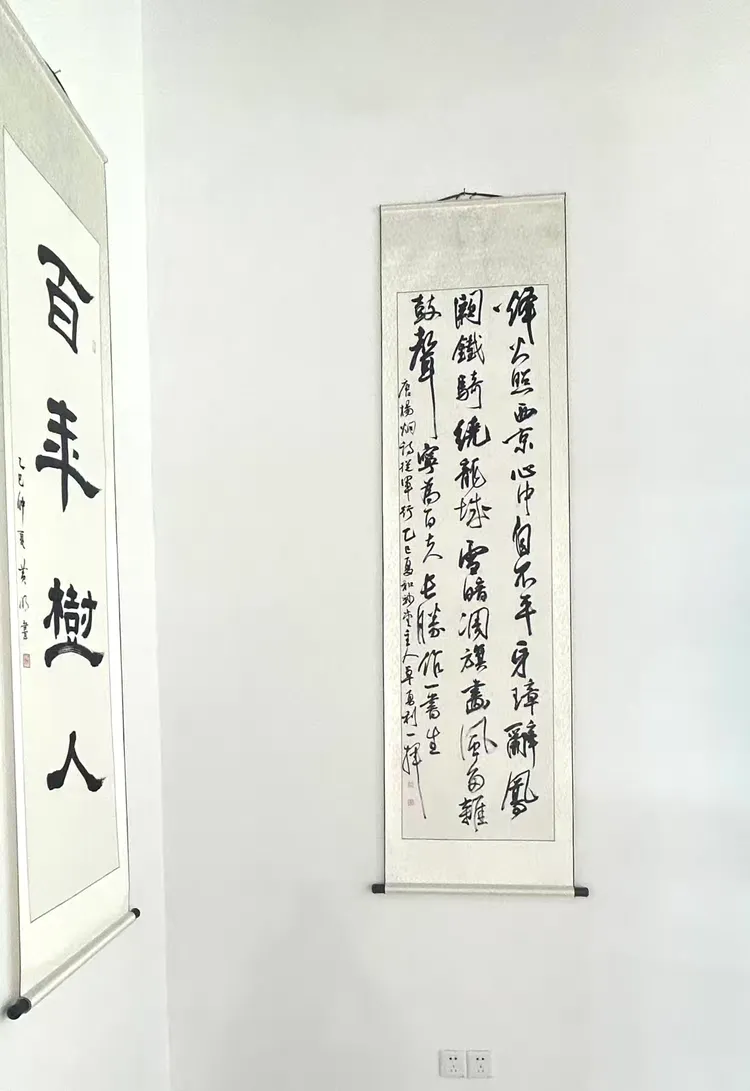 烽火照西京心中自不平牙璋辭鳳
闕鐵騎繞龍城雪暗凋旗畫風多雜
鼓聲寧為百夫長勝作一書生
唐楊炯詩從軍行乙巳夏和堂主人卓利一揮
百年樹人
乙巳仲夏黄書